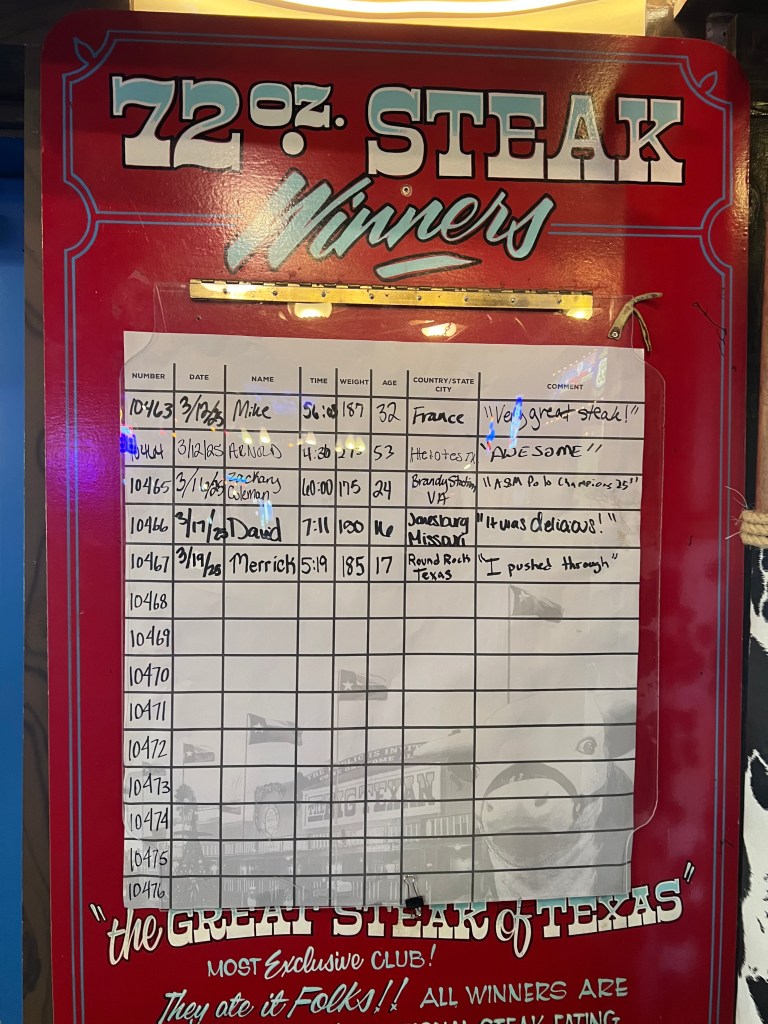 72 OZ. STEAK
Winners
NUMBER DATE NAME TIME WEIGHT AGE COUNTRY/STATE CITY COMMENT
10463 3/12/25 Mike 56:03 187 32 France "Very great steak!"
10464 3/12/25 ARNOLD 53 "AWESOME"
10465 3/16/25 Zackary Coleman 60:00 175 24 Brandy Station VA "A&M Polo Champions 25"
10466 3/17/25 David 7:11 16 Jonesburg Missouri "It was delicious!"
10467 3/19/25 Merrick 5:19 185 17 Round Rock Texas "I pushed through"
10468
10469
10470
10471
10472
10473
10474
10475
10476
THE BIG TEXAN
"the GREAT STEAK of TEXAS"
MOST Exclusive CLUB!
They ate it Folks!! ALL WINNERS ARE
STEAK EATING